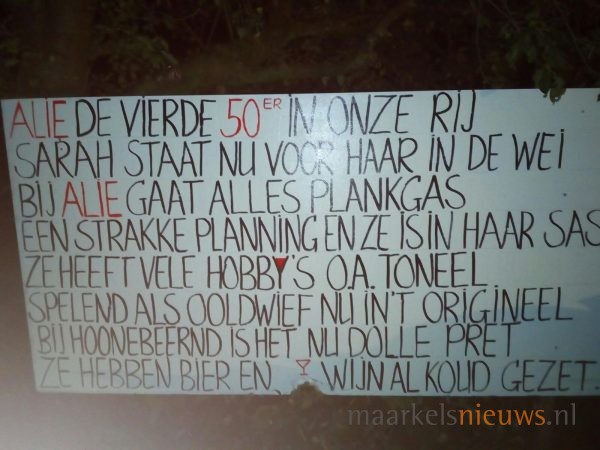 ALIE DE VIERDE 50ER IN ONZE RIJ
SARAH STAAT NU VOOR HAAR IN DE WEI
BIJ ALIE GAAT ALLES PLANKGAS
EEN STRAKKE PLANNING EN ZE IS IN HAAR SAS
ZE HEEFT VELE HOBBY'S O.A. TONEEL
SPELEND ALS OOLDWIEF NU IN'T ORIGINEEL
BIJ HOONEBEERND IS HET NU DOLLE PRET
ZE HEBBEN BIER EN WIJN AL KOUD GEZET.
maarkelsnieuws.nl